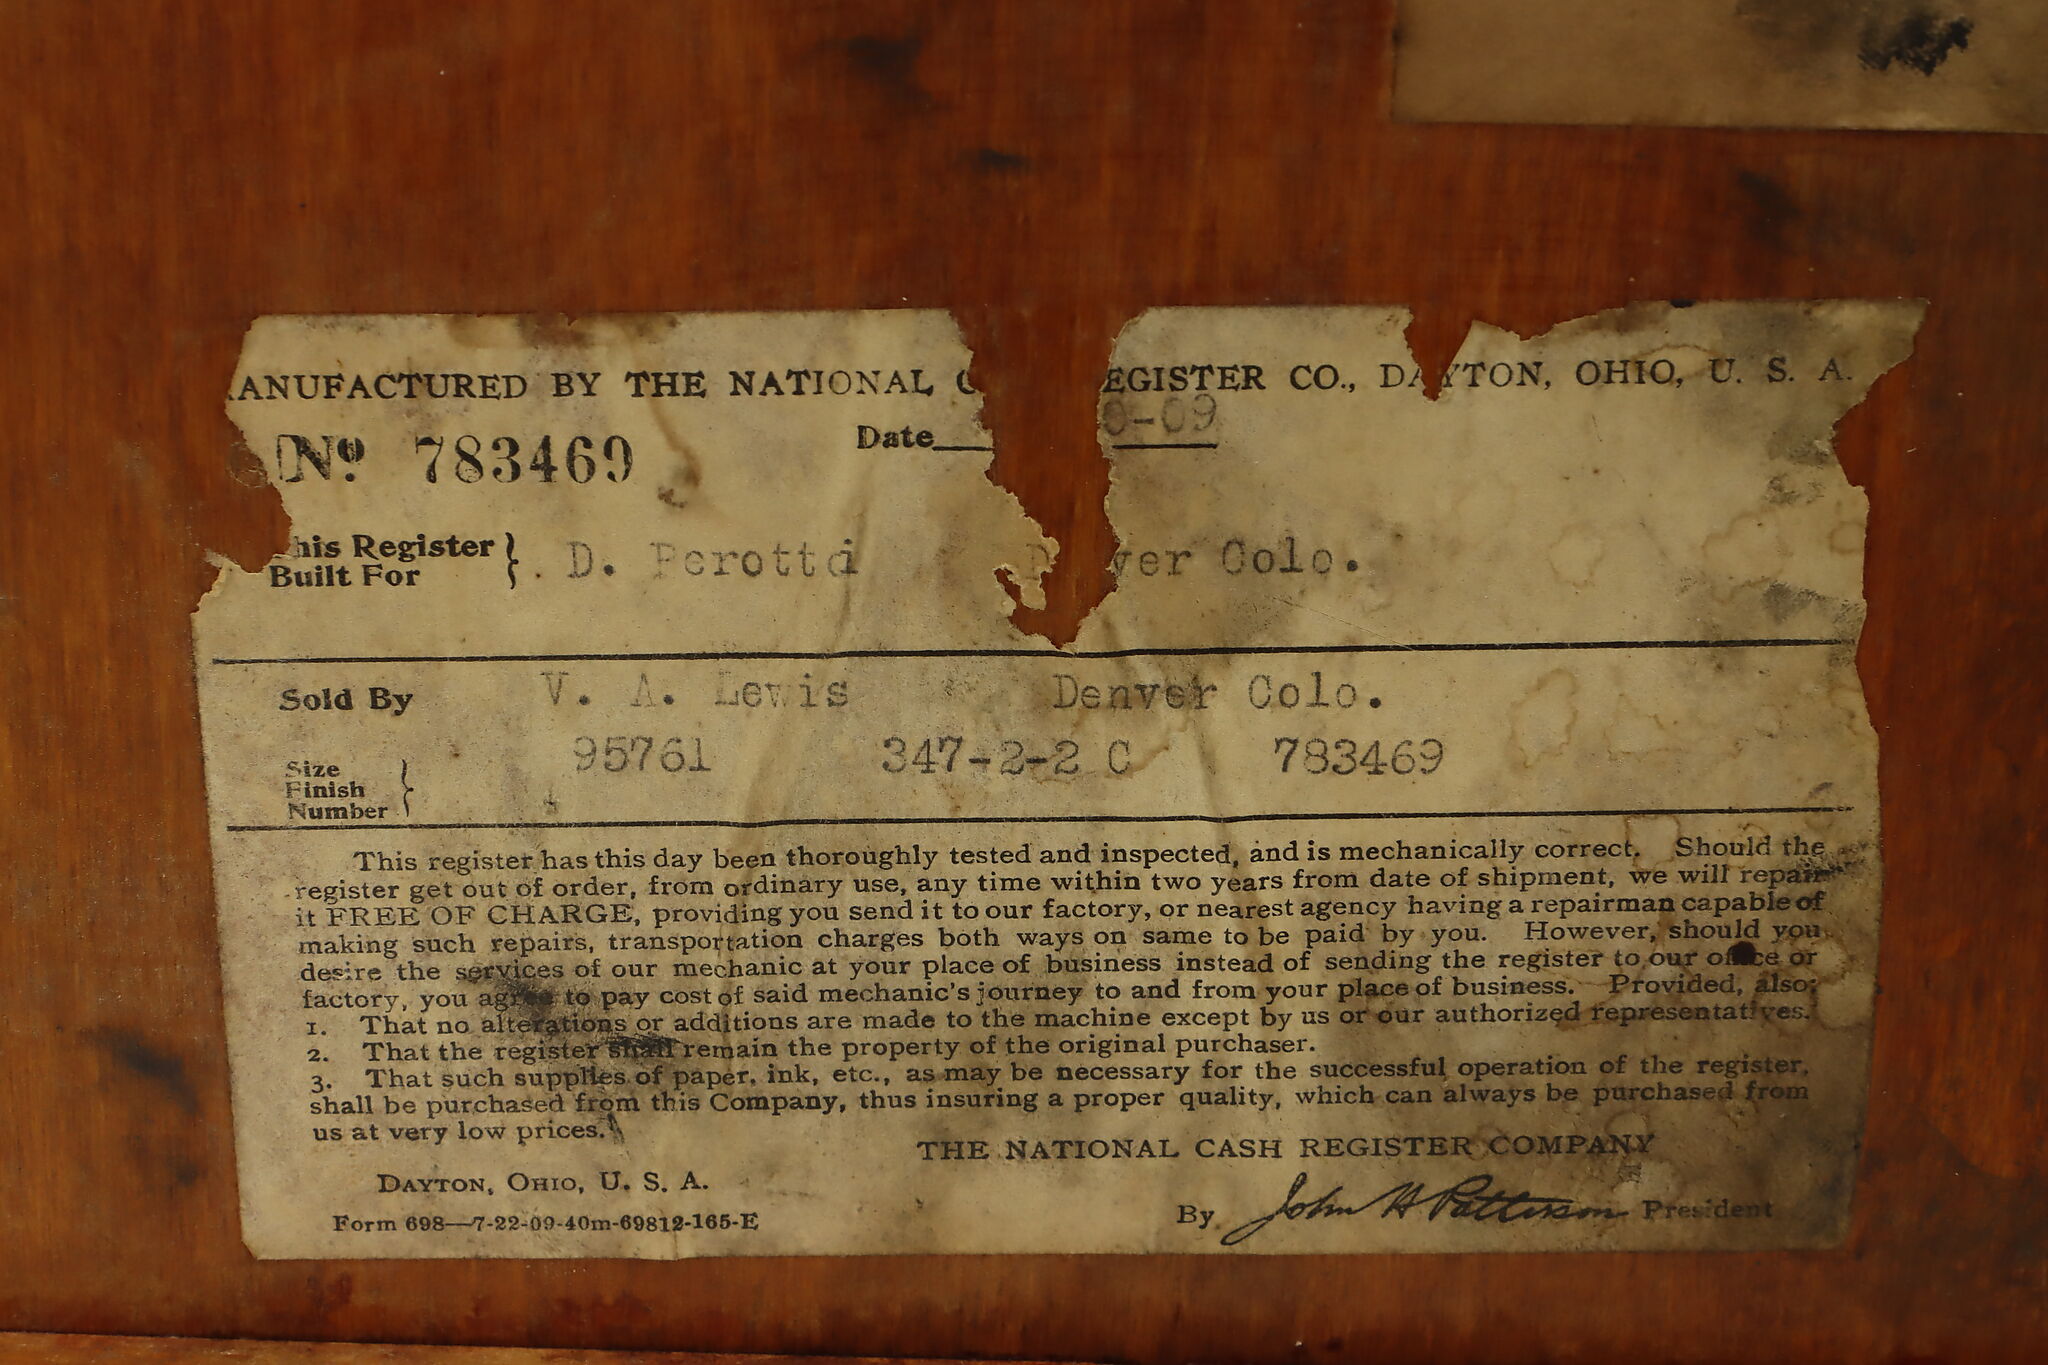 ANUFACTURED BY THE NATIONAL C EGISTER CO., DAYTON, OHIO, U. S. A.
No. 783469 Date 0-09
his Register Built For } D. Perotti Denver Colo.
Sold By V. A. Lewis Denver Colo.
Size Finish Number } 95761 347-2-2 C 783469
This register has this day been thoroughly tested and inspected, and is mechanically correct. Should the
register get out of order, from ordinary use, any time within two years from date of shipment, we will repair
it FREE OF CHARGE, providing you send it to our factory, or nearest agency having a repairman capable of
making such repairs, transportation charges both ways on same to be paid by you. However, should you
desire the services of our mechanic at your place of business instead of sending the register to our office or
factory, you agree to pay cost of said mechanic's journey to and from your place of business. Provided, also;
1. That no alterations or additions are made to the machine except by us or our authorized representatives.
2. That the register shall remain the property of the original purchaser.
3. That such supplies of paper, ink, etc., as may be necessary for the successful operation of the register,
shall be purchased from this Company, thus insuring a proper quality, which can always be purchased from
us at very low prices.
THE NATIONAL CASH REGISTER COMPANY
DAYTON, OHIO, U. S. A.
By John H Patterson President
Form 698—7-22-09-40m-69812-165-E